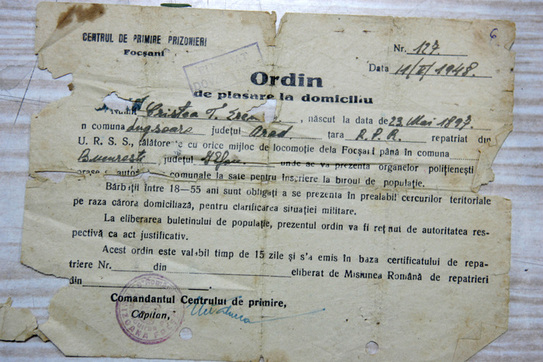 6
CENTRUL DE PRIMIRE PRIZONIERI
Focșani
Nr. 127
Data 11/V/1948
Ordin
de plasare la domiciliu
Cristea T. născut la data de 23 Mai 1897.
n comuna județul Arad țara R.P.R. repatriat din
U. R. S. S., călătorește cu orice mijloc de locomoție dela Focșani până în comuna
București județul Ilfov unde se va prezenta organelor polițienești
comunale la sate pentru înscriere la biroul de populație.
Bărbații între 18—55 ani sunt obligați a se prezenta în prealabil cercurilor teritoriale
pe raza cărora domiciliază, pentru clarificarea situației militare.
La eliberarea buletinului de populație, prezentul ordin va fi reținut de autoritatea res-
pectivă ca act justificativ.
Acest ordin este valabil timp de 15 zile și s'a emis în baza certificatului de repa-
triere Nr. din eliberat de Misiunea Română de repatrieri
din
Comandantul Centrului de primire,
Căpitan,